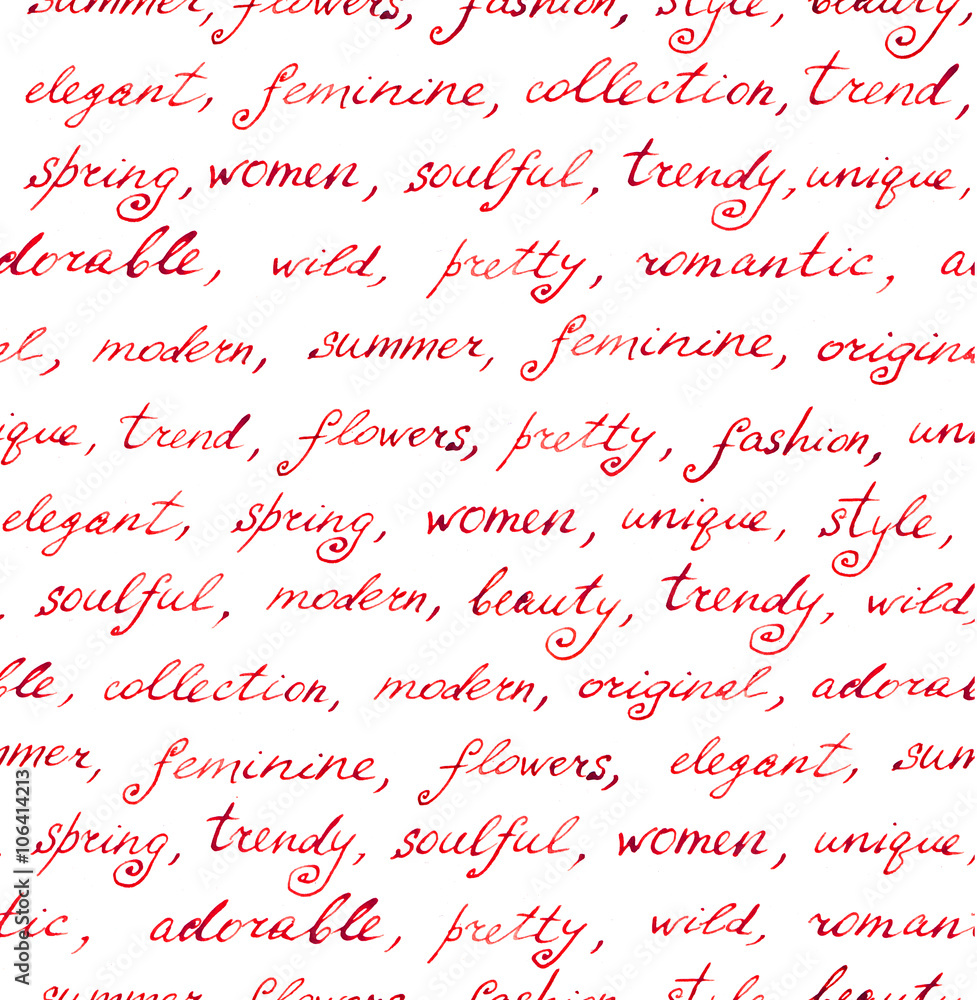 summer, flowers, fashion, style, beauty,
elegant, feminine, collection, trend,
spring, women, soulful, trendy, unique,
dorable, wild, pretty, romantic, a
el, modern, summer, feminine, origina
ique, trend, flowers, pretty, fashion, uni
elegant, spring, women, unique, style,
, soulful, modern, beauty, trendy, wild,
ble, collection, modern, original, adorab
mmer, feminine, flowers, elegant, sum
spring, trendy, soulful, women, unique,
tic, adorable, pretty, wild, roman
summer, flowers, fashion, style, beauty
Adobe Stock | #106414213